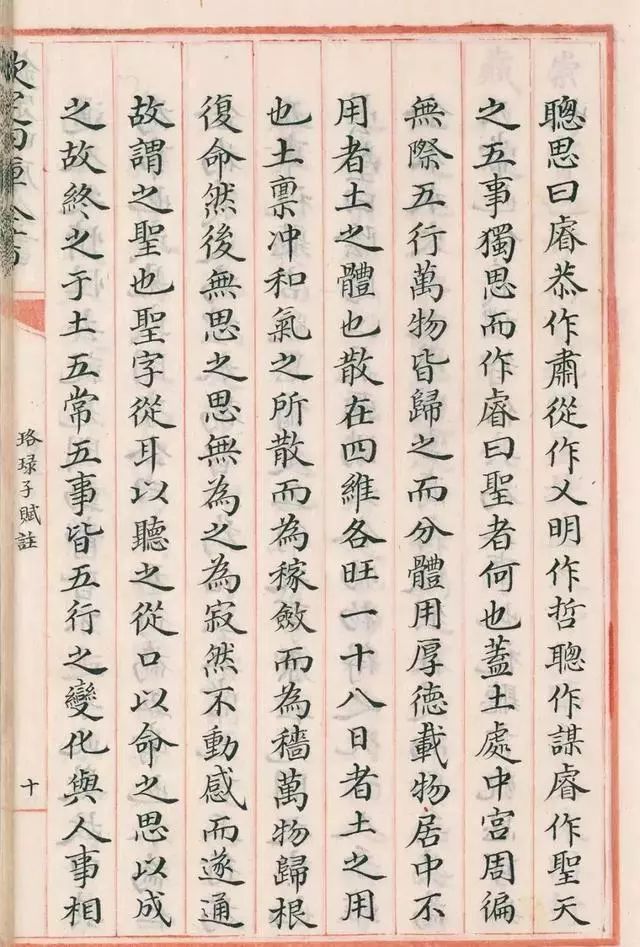 聰思曰睿恭作肅從作乂明作哲聰作謀睿作聖天
之五事獨思而作睿曰聖者何也蓋土處中宮周徧
無際五行萬物皆歸之而分體用厚德載物居中不
用者土之體也散在四維各旺一十八日者土之用
也土禀冲和氣之所散而為稼斂而為穡萬物歸根
復命然後無思之思無為之為寂然不動感而遂通
故謂之聖也聖字從耳以聽之從口以命之思以成
之故終之于土五常五事皆五行之變化與人事相
欽定四庫全書
珞琭子賦註
十